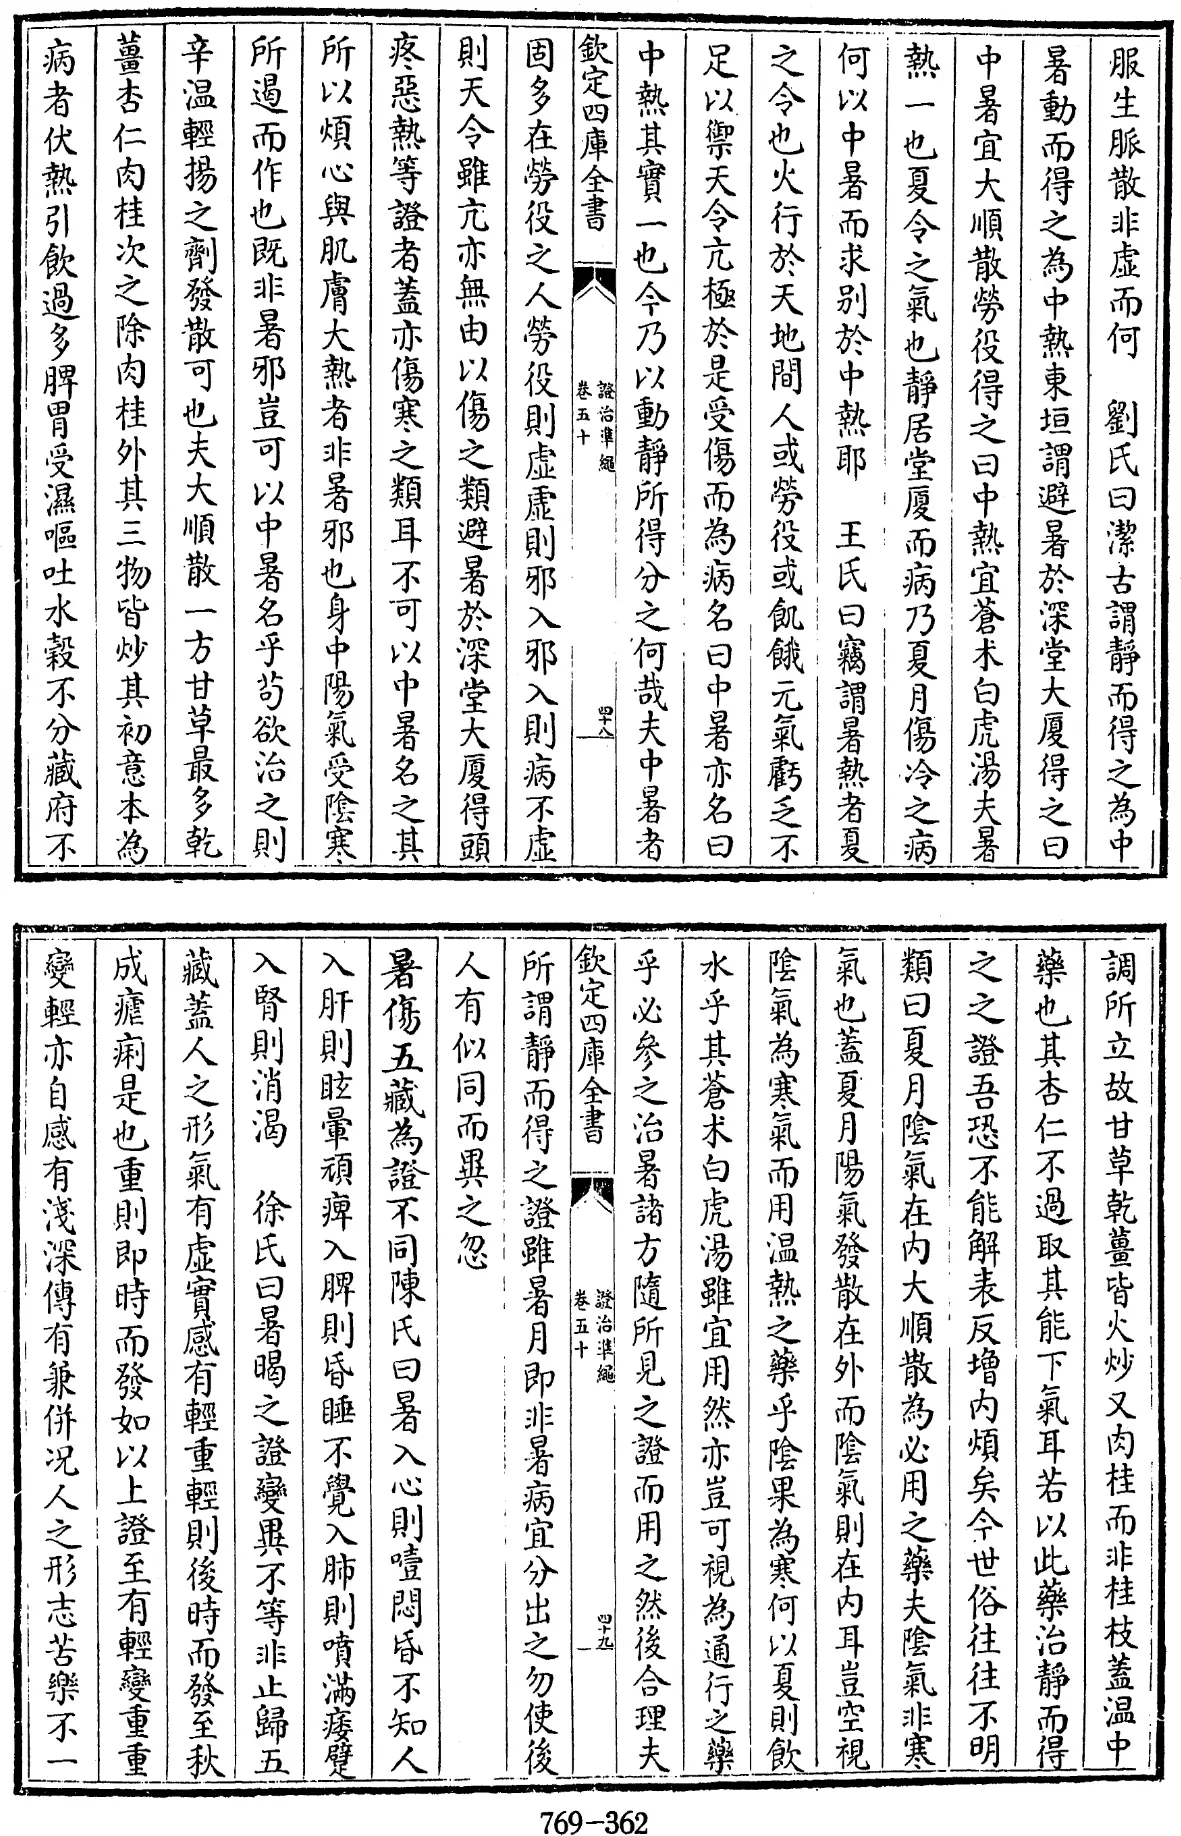 服生脈散非虛而何　劉氏曰潔古謂靜而得之為中
暑動而得之為中熱東垣謂避暑於深堂大厦得之曰
中暑宜大順散勞役得之曰中熱宜蒼朮白虎湯夫暑
熱一也夏令之氣也靜居堂厦而病乃夏月傷冷之病
何以中暑而求别於中熱耶　王氏曰竊謂暑熱者夏
之令也火行於天地間人或勞役或飢餓元氣虧乏不
足以禦天令亢極於是受傷而為病名曰中暑亦名曰
中熱其實一也今乃以動靜所得分之何哉夫中暑者
欽定四庫全書
證治準繩
卷五十
四十八
固多在勞役之人勞役則虛虛則邪入邪入則病不虛
則天令雖亢亦無由以傷之類避暑於深堂大厦得頭
疼惡熱等證者蓋亦傷寒之類耳不可以中暑名之其
所以煩心與肌膚大熱者非暑邪也身中陽氣受陰寒
所遏而作也既非暑邪豈可以中暑名乎苟欲治之則
辛温輕揚之劑發散可也夫大順散一方甘草最多乾
薑杏仁肉桂次之除肉桂外其三物皆炒其初意本為
病者伏熱引飲過多脾胃受濕嘔吐水穀不分藏府不
調所立故甘草乾薑皆火炒又肉桂而非桂枝蓋温中
藥也其杏仁不過取其能下氣耳若以此藥治靜而得
之之證吾恐不能解表反増内煩矣今世俗往往不明
類曰夏月陰氣在内大順散為必用之藥夫陰氣非寒
氣也蓋夏月陽氣發散在外而陰氣則在内耳豈空視
陰氣為寒氣而用温熱之藥乎陰果為寒何以夏則飲
水乎其蒼朮白虎湯雖宜用然亦豈可視為通行之藥
乎必參之治暑諸方隨所見之證而用之然後合理夫
欽定四庫全書
證治準繩
卷五十
四十九
所謂靜而得之證雖暑月即非暑病宜分出之勿使後
人有似同而異之忽
暑傷五藏為證不同陳氏曰暑入心則噎悶昏不知人
入肝則眩暈頑痺入脾則昏睡不覺入肺則噴滿痿躄
入腎則消渴　徐氏曰暑暍之證變異不等非止歸五
藏蓋人之形氣有虛實感有輕重輕則後時而發至秋
成瘧痢是也重則即時而發如以上證至有輕變重重
變輕亦自感有淺深傳有兼併况人之形志苦樂不一
769-362